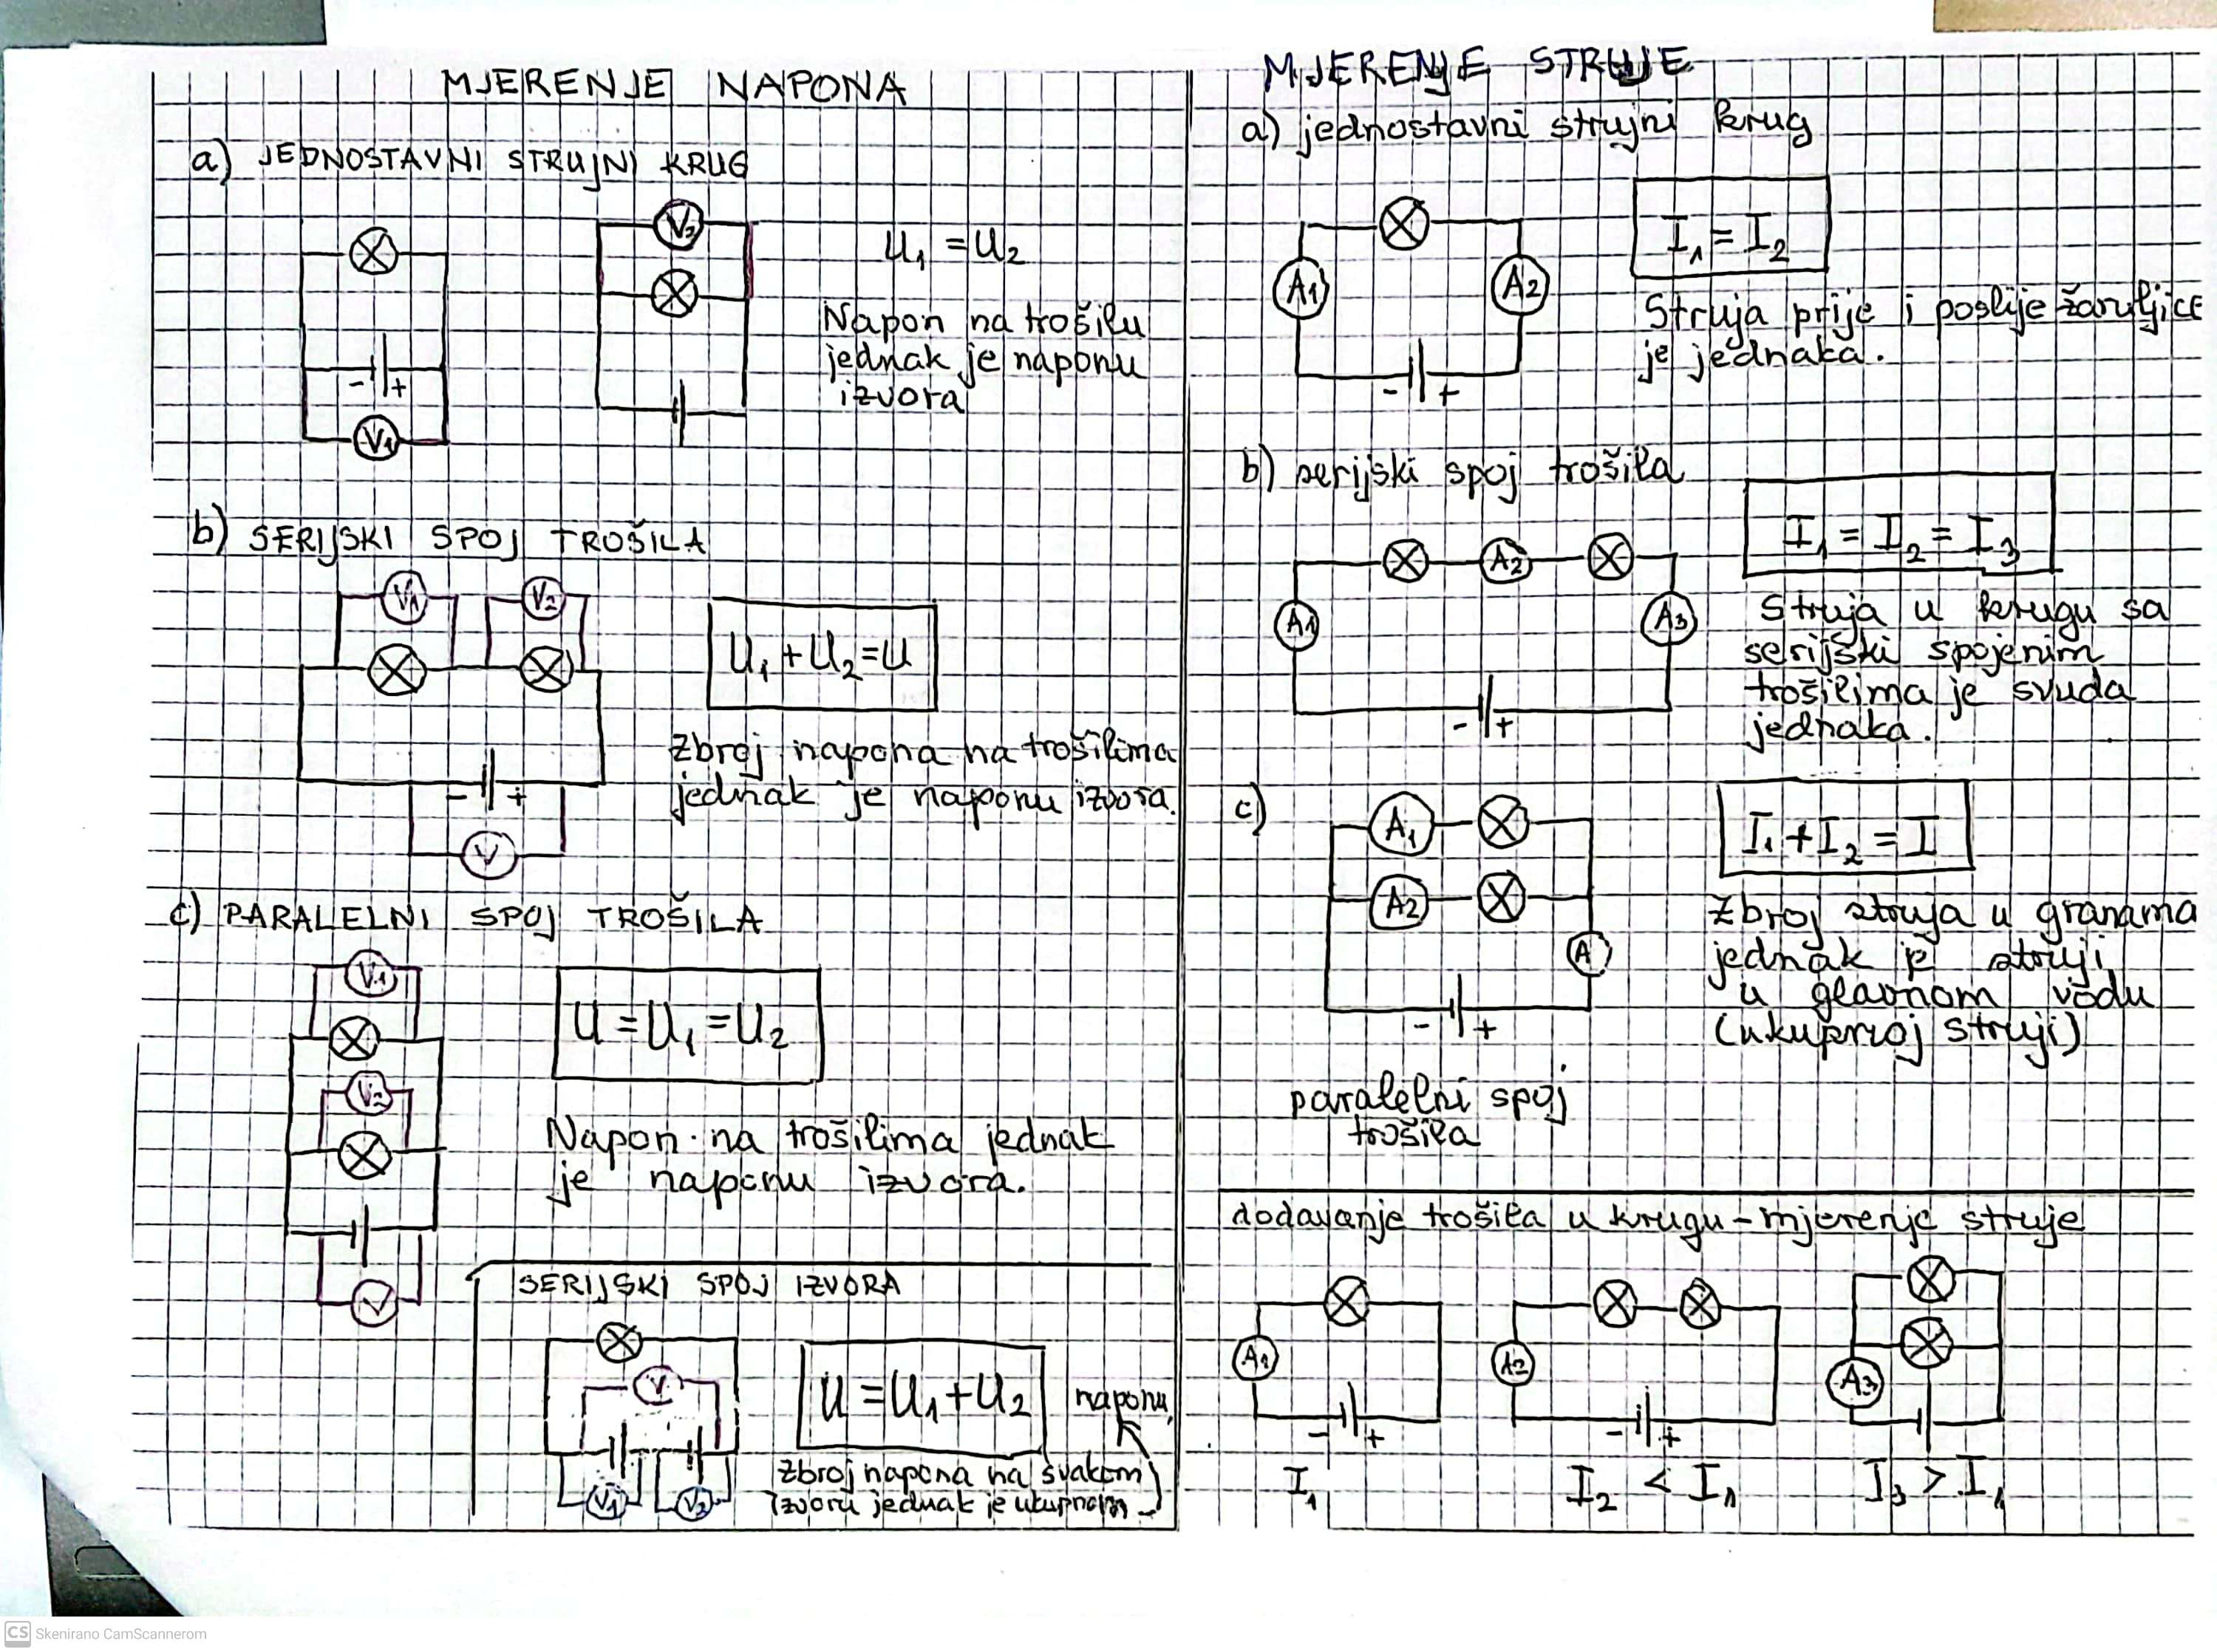 MJERENJE NAPONA
a) JEDNOSTAVNI STRUJNI KRUG
V2
U1 = U2
Napon na trošilu
jednak je naponu
izvora
- +
V1
b) SERIJSKI SPOJ TROŠILA
V1 V2
U1 + U2 = U
Zbroj napona na trošilima
jednak je naponu izvora.
- +
V
c) PARALELNI SPOJ TROŠILA
V1
U = U1 = U2
V2
Napon na trošilima jednak
je naponu izvora.
V
SERIJSKI SPOJ IZVORA
V
U = U1 + U2
naponu
Zbroj napona na svakom
izvoru jednak je ukupnom
V1 V2
MJERENJE STRUJE
a) jednostavni strujni krug
I1 = I2
A1 A2
Struja prije i poslije žaruljice
je jednaka.
- +
b) serijski spoj trošila
I1 = I2 = I3
A2
A1 A3
Struja u krugu sa
serijski spojenim
trošilima je svuda
jednaka.
- +
c)
A1
I1 + I2 = I
A2
A
Zbroj struja u granama
jednak je struji
u glavnom vodu
(ukupnoj struji)
- +
paralelni spoj
trošila
dodavanje trošila u krugu - mjerenje struje
A1 A2 A3
- + - +
I1 I2 < I1 I3 > I1
CS Skenirano CamScannerom